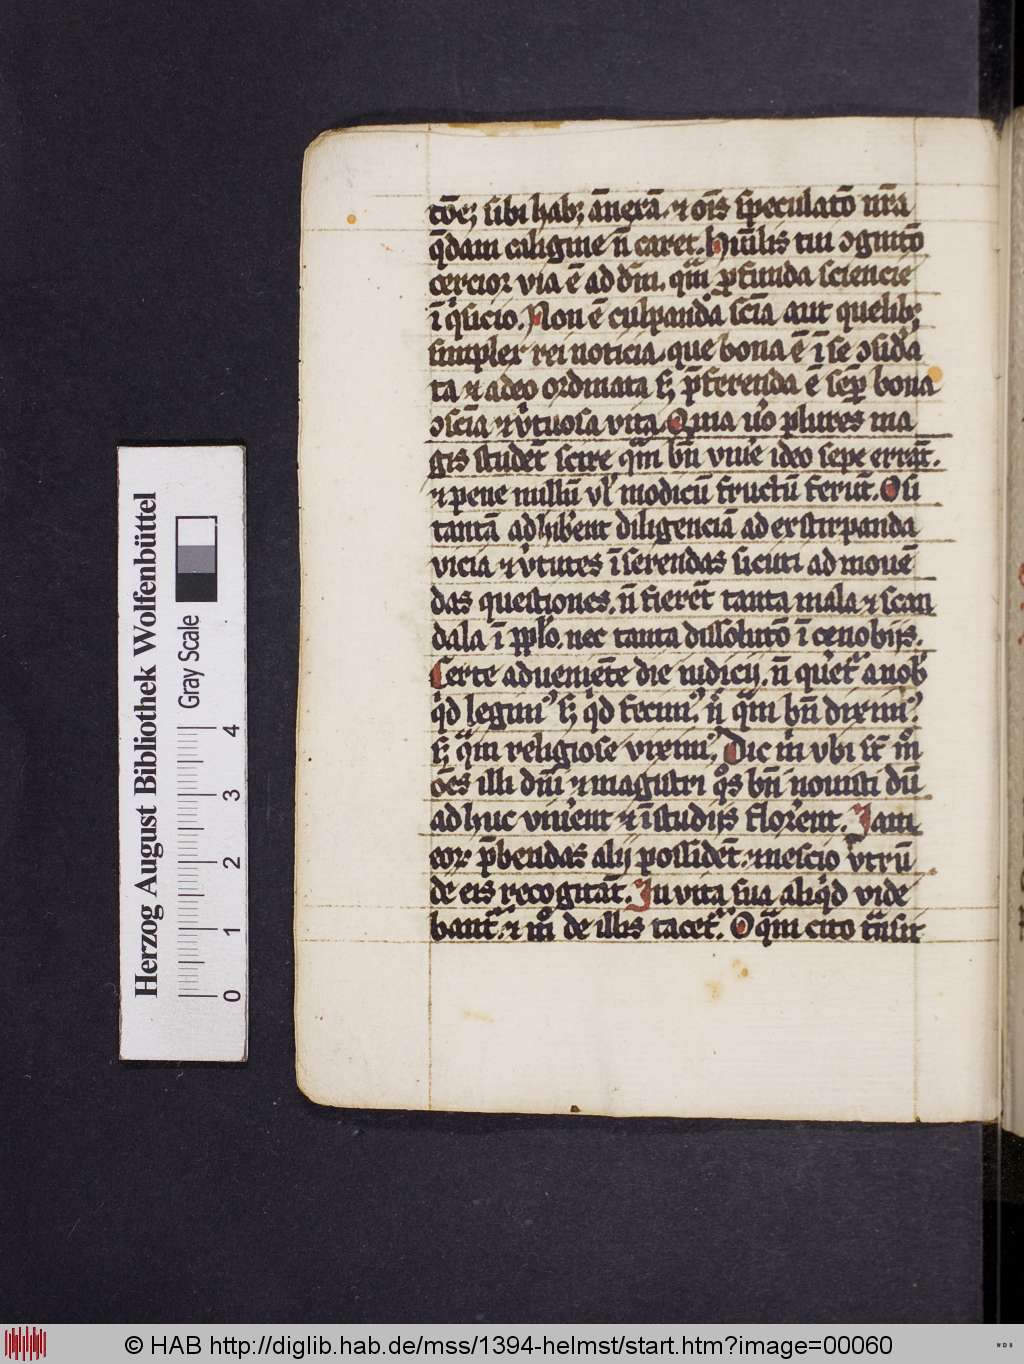 tōeꝫ sibi habꝫ ānexā. ⁊ oīs speculatō nr̄a
q̄dam caligine n̄ caret. Hūilis tui ↄgnitō
cercior via ē ad dm̄. qm̄ ꝓfunda sciencie
ī qͥsicio. Non ē culpanda scīa aut quelibꝫ
simplex rei noticia. que bona ē ī se ↄsid'a
ta ⁊ a deo ordinata sꝫ p̄ferenda ē semꝑ bona
ↄscīa ⁊ v'tuosa vita. Quia u'o plures ma
gis studēt scire qm̄ bn̄ viu'e ideo sepe errāt.
⁊ pene nullū vl' modicū fructū ferūt. O si
tantā adhib'ent diligenciā ad exstirpanda
vicia ⁊ v'tutes īserendas sicuti ad mouē
das questiones. n̄ fierēt tanta mala ⁊ scan
dala ī pp̄lo. nec tanta dissolutō ī cenobijs.
Certe adueniēte die iudicij. n̄ queret̄ a nob̄
qͥd legimꝰ sꝫ qͥd fecimꝰ. n̄ qm̄ bn̄ diximꝰ.
sꝫ qm̄ religiose viximꝰ. Dic m̄ vbi st̄ mͦ
oēs illi dn̄i ⁊ magistri qͦs bn̄ nouisti dū
adhuc viu'ent ⁊ ī studijs flor'ent. Jam
eoꝝ p̄bendas alij possidēt. ⁊ nescio vtrū
de eis recogitāt. In vita sua aliqͥd vide
bant̄. ⁊ mͦ de illis tacet̄. O qm̄ cito tn̄sit
Herzog August Bibliothek Wolfenbüttel
Gray Scale
0 1 2 3 4
© HAB http://diglib.hab.de/mss/1394-helmst/start.htm?image=00060